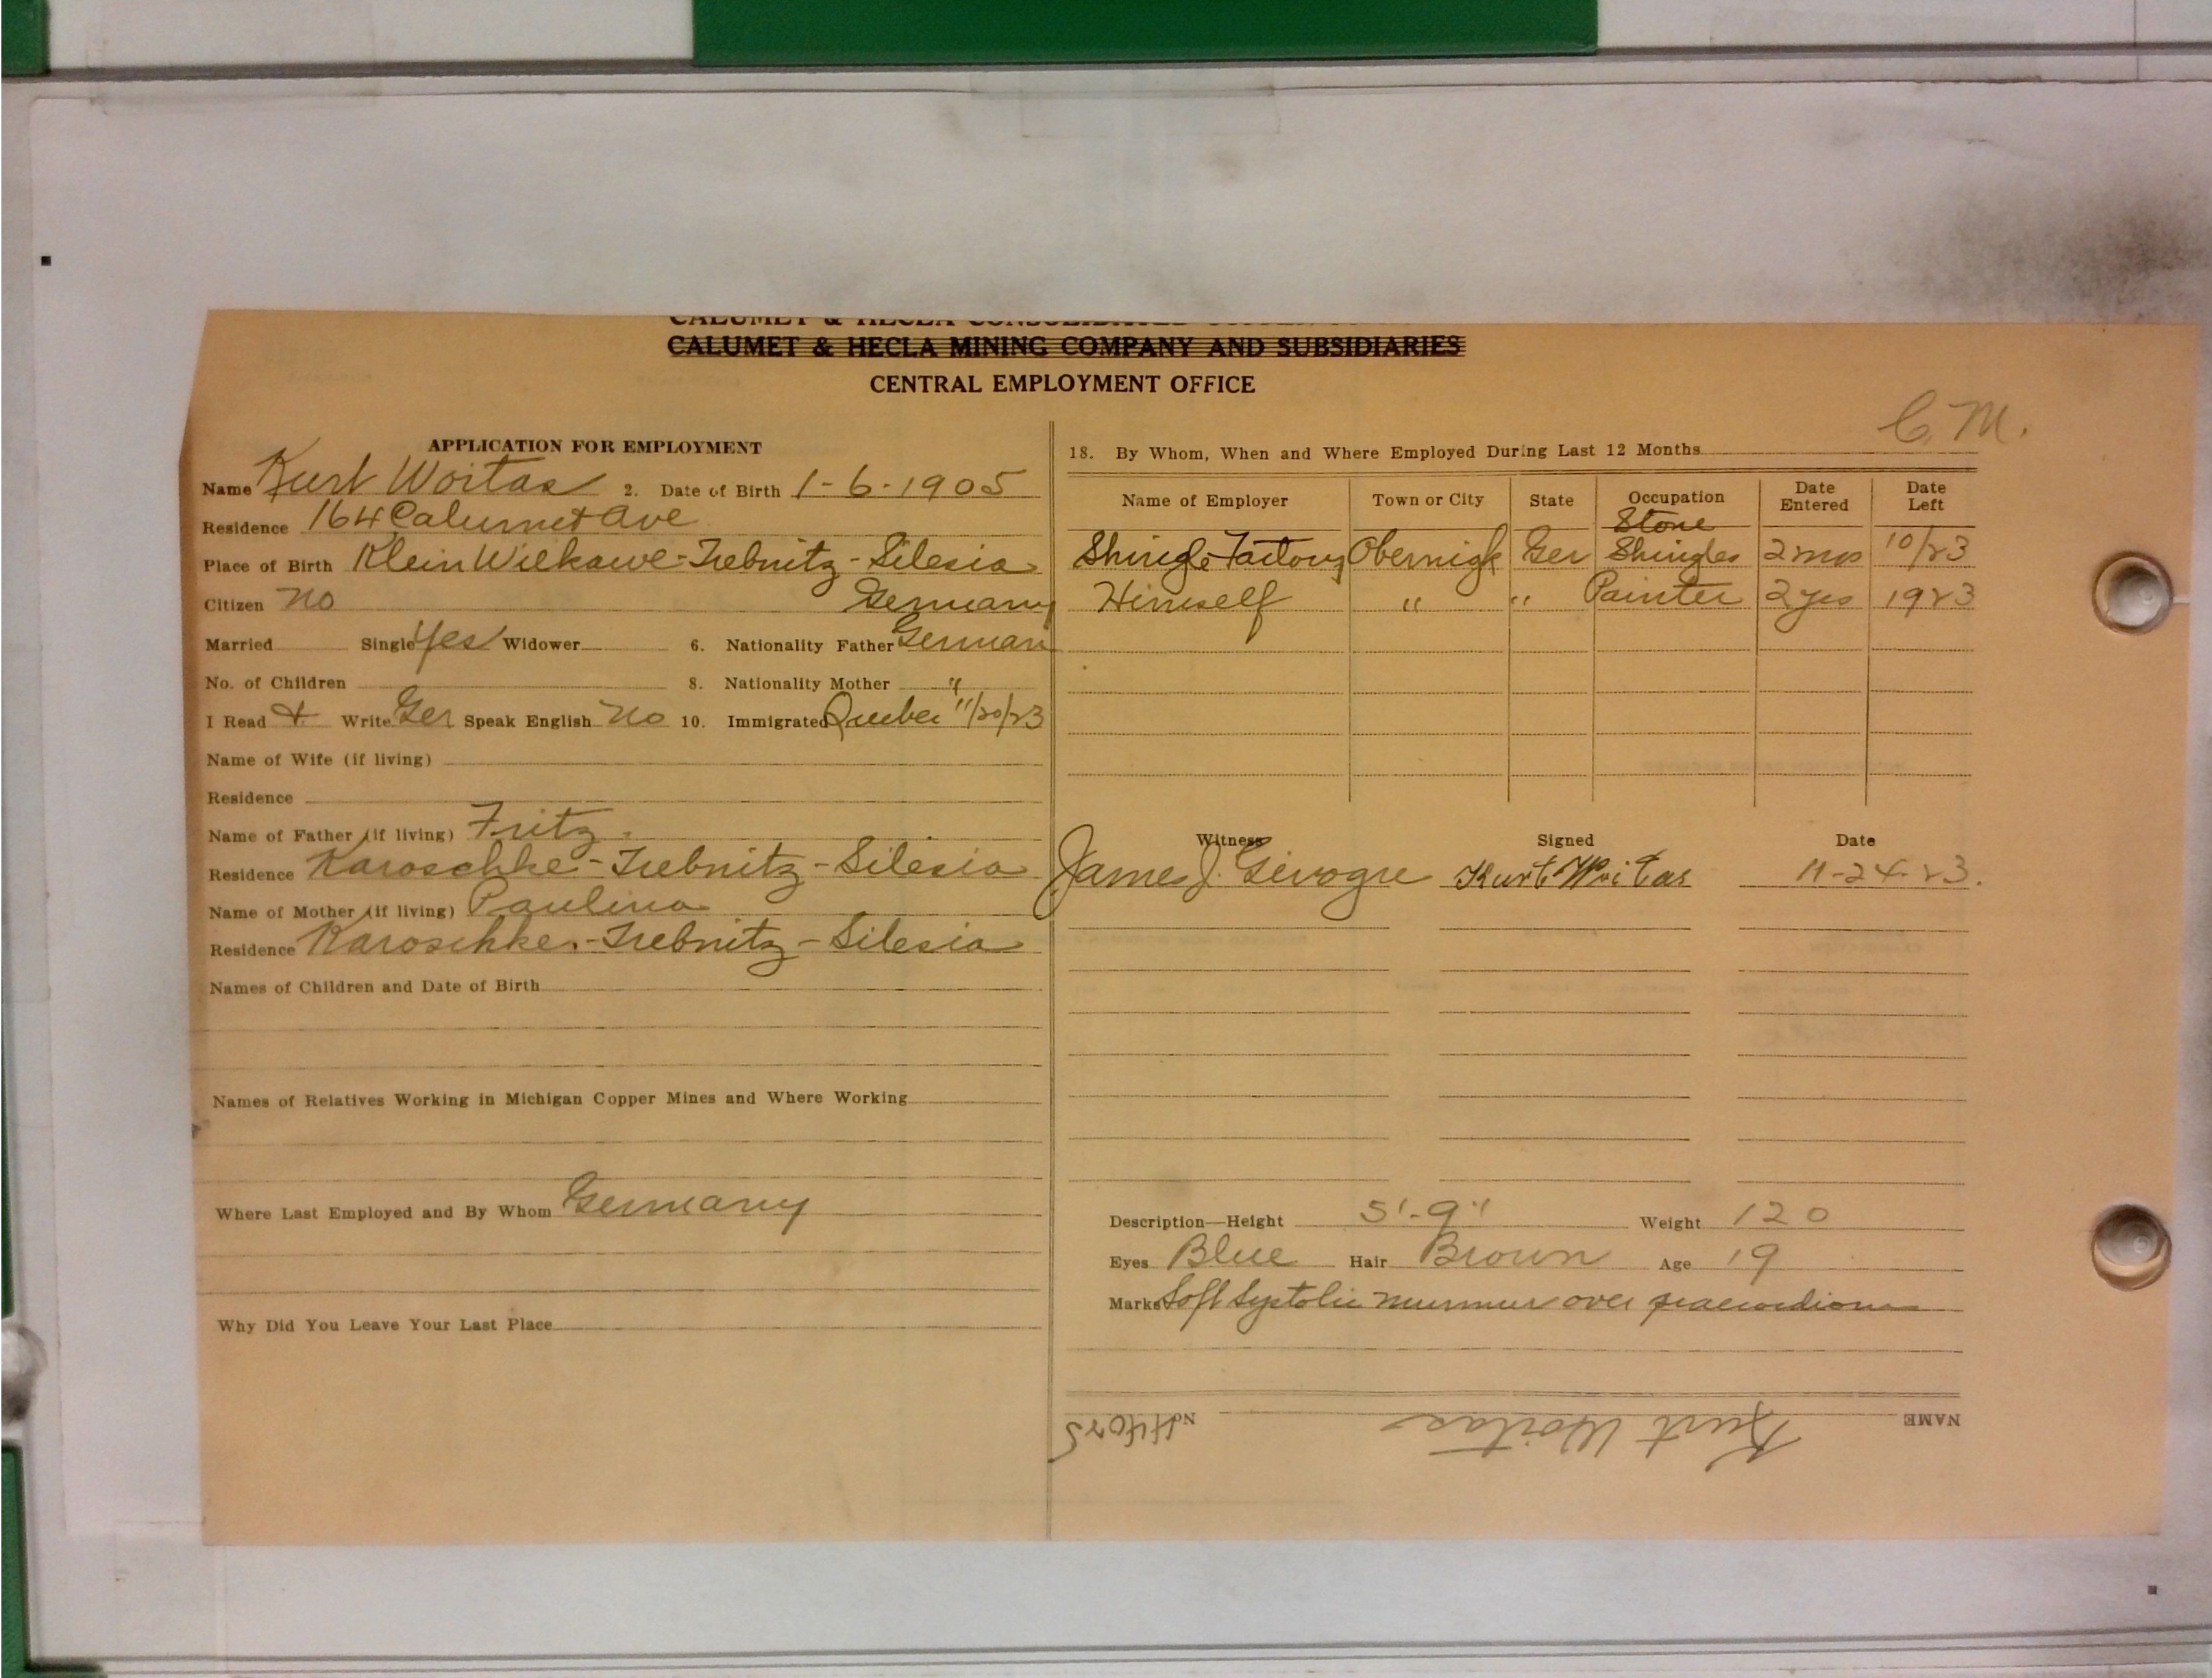 CALUMET & HECLA CONSOLIDATED
CALUMET & HECLA MINING COMPANY AND SUBSIDIARIES
CENTRAL EMPLOYMENT OFFICE
C. M.
APPLICATION FOR EMPLOYMENT
Name Kurt Woitas 2. Date of Birth 1-6-1905
Residence 164 Calumet Ave
Place of Birth Klein Wilkawe-Trebnitz-Silesia
Citizen no Germany
Married Single Yes Widower 6. Nationality Father German
No. of Children 8. Nationality Mother "
I Read + Write Ger Speak English No 10. Immigrated Quebec 11/20/23
Name of Wife (if living)
Residence
Name of Father (if living) Fritz
Residence Karoschke-Trebnitz-Silesia
Name of Mother (if living) Paulina
Residence Karoschke-Trebnitz-Silesia
Names of Children and Date of Birth
Names of Relatives Working in Michigan Copper Mines and Where Working
Where Last Employed and By Whom Germany
Why Did You Leave Your Last Place
18. By Whom, When and Where Employed During Last 12 Months
Name of Employer Town or City State Occupation Date Entered Date Left
Shingle Factory Obernigk Ger Stone Shingles 2 mos 10/23
Himself " " Painter 2 yrs 1923
Witness Signed Date
James J. Kurt Woitas 11-24-23.
Description—Height 5'-9" Weight 120
Eyes Blue Hair Brown Age 19
Marks Soft Systolic murmur over praecordium
NAME Kurt Woitas No. 44025